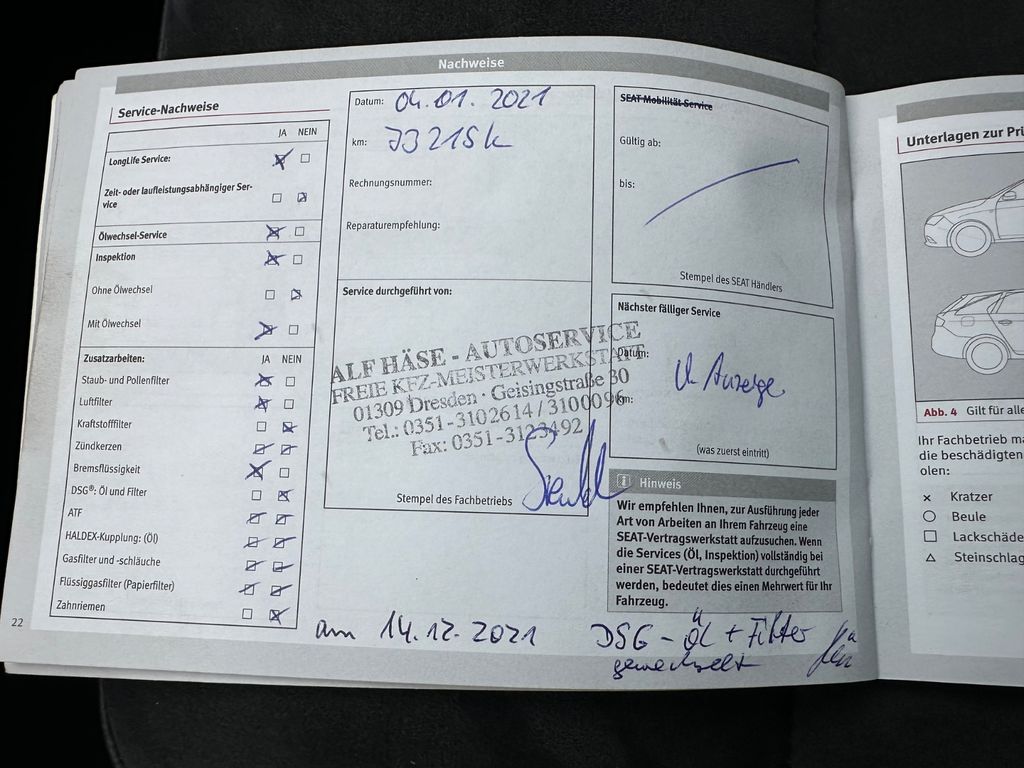 Nachweise
Service-Nachweise
JA NEIN
LongLife Service:
Zeit- oder laufleistungsabhängiger Ser-
vice
Ölwechsel-Service
Inspektion
Ohne Ölwechsel
Mit Ölwechsel
Zusatzarbeiten: JA NEIN
Staub- und Pollenfilter
Luftfilter
Kraftstofffilter
Zündkerzen
Bremsflüssigkeit
DSG®: Öl und Filter
ATF
HALDEX-Kupplung: (Öl)
Gasfilter und -schläuche
Flüssiggasfilter (Papierfilter)
Zahnriemen
22
Datum: 04.01.2021
km:
Rechnungsnummer:
Reparaturempfehlung:
Service durchgeführt von:
ALF HÄSE - AUTOSERVICE
FREIE KFZ-MEISTERWERKSTATT
01309 Dresden · Geisingstraße 30
Tel.: 0351-3102614 / 3100096
Fax: 0351-3123492
Stempel des Fachbetriebs
SEAT Mobilität-Service
Gültig ab:
bis:
Stempel des SEAT Händlers
Nächster fälliger Service
Datum:
km:
Anzeige
(was zuerst eintritt)
i Hinweis
Wir empfehlen Ihnen, zur Ausführung jeder
Art von Arbeiten an Ihrem Fahrzeug eine
SEAT-Vertragswerkstatt aufzusuchen. Wenn
die Services (Öl, Inspektion) vollständig bei
einer SEAT-Vertragswerkstatt durchgeführt
werden, bedeutet dies einen Mehrwert für Ihr
Fahrzeug.
am 14.12.2021 DSG-Öl + Filter
gewechselt
Unterlagen zur Prü
Abb. 4 Gilt für alle
Ihr Fachbetrieb ma
die beschädigten
olen:
× Kratzer
○ Beule
□ Lackschäde
△ Steinschlag